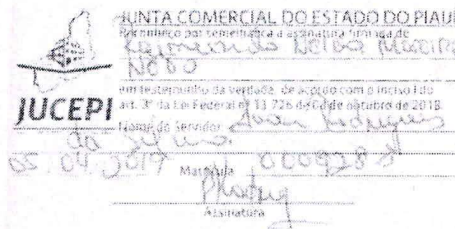 JUNTA COMERCIAL DO ESTADO DO PIAUÍ
Reconheço por semelhança a assinatura firmada de
Raimundo
em testemunho da verdade, de acordo com o inciso I do
art. 3º da Lei Federal nº 13.726 de 08 de outubro de 2018.
JUCEPI
Nome do Servidor Rodrigues
da
05 04 2019 Matrícula
Assinatura